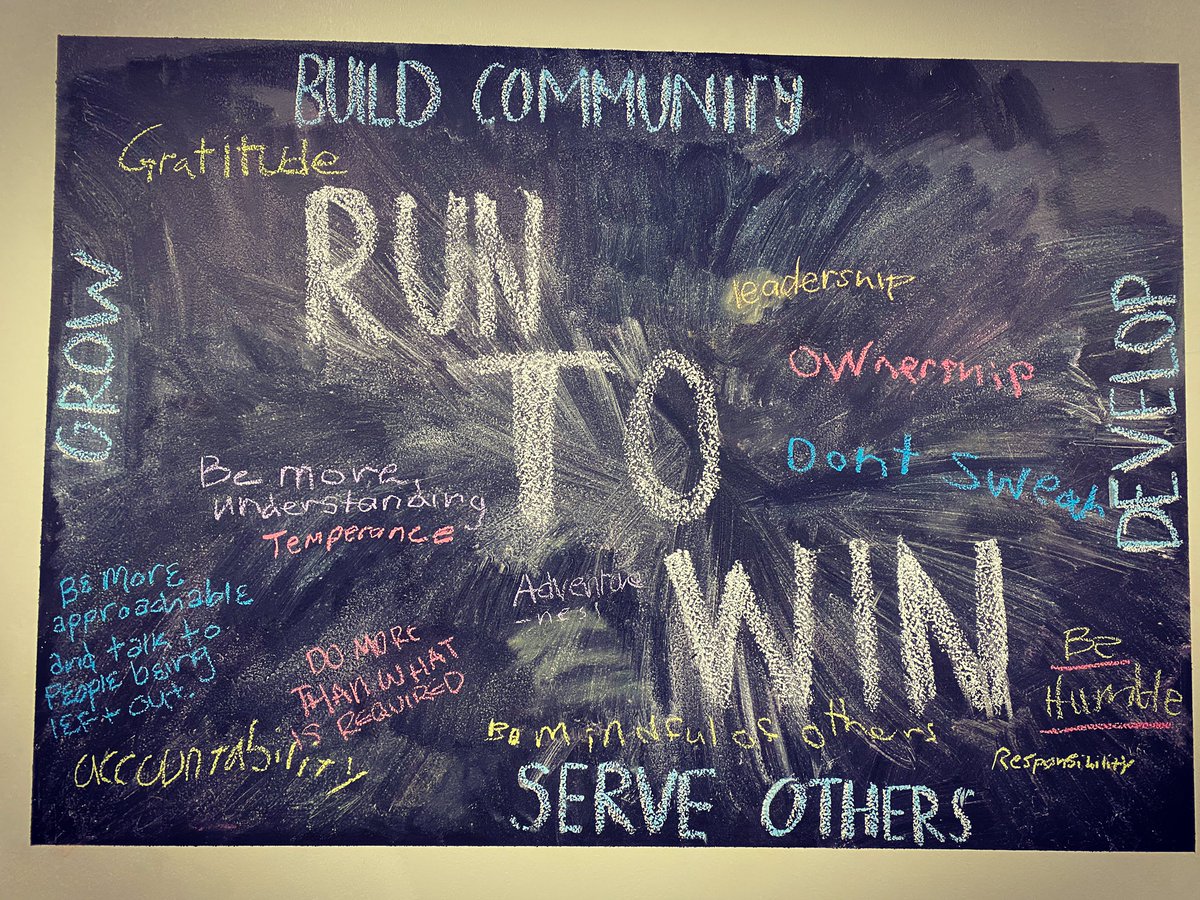 BUILD COMMUNITY
Gratitude
RUN
TO
WIN
GROW
leadership
Ownership
DEVELOP
Dont Sweah
Be more
understanding
Temperance
Adventure
-ness
BE MORE
approachable
and talk to
PEOPLE being
lEFt out.
DO MORE
THAN WHAT
IS REQUIRED
BE
Humble
Be mindful of others
Responsibility
accountability
SERVE OTHERS